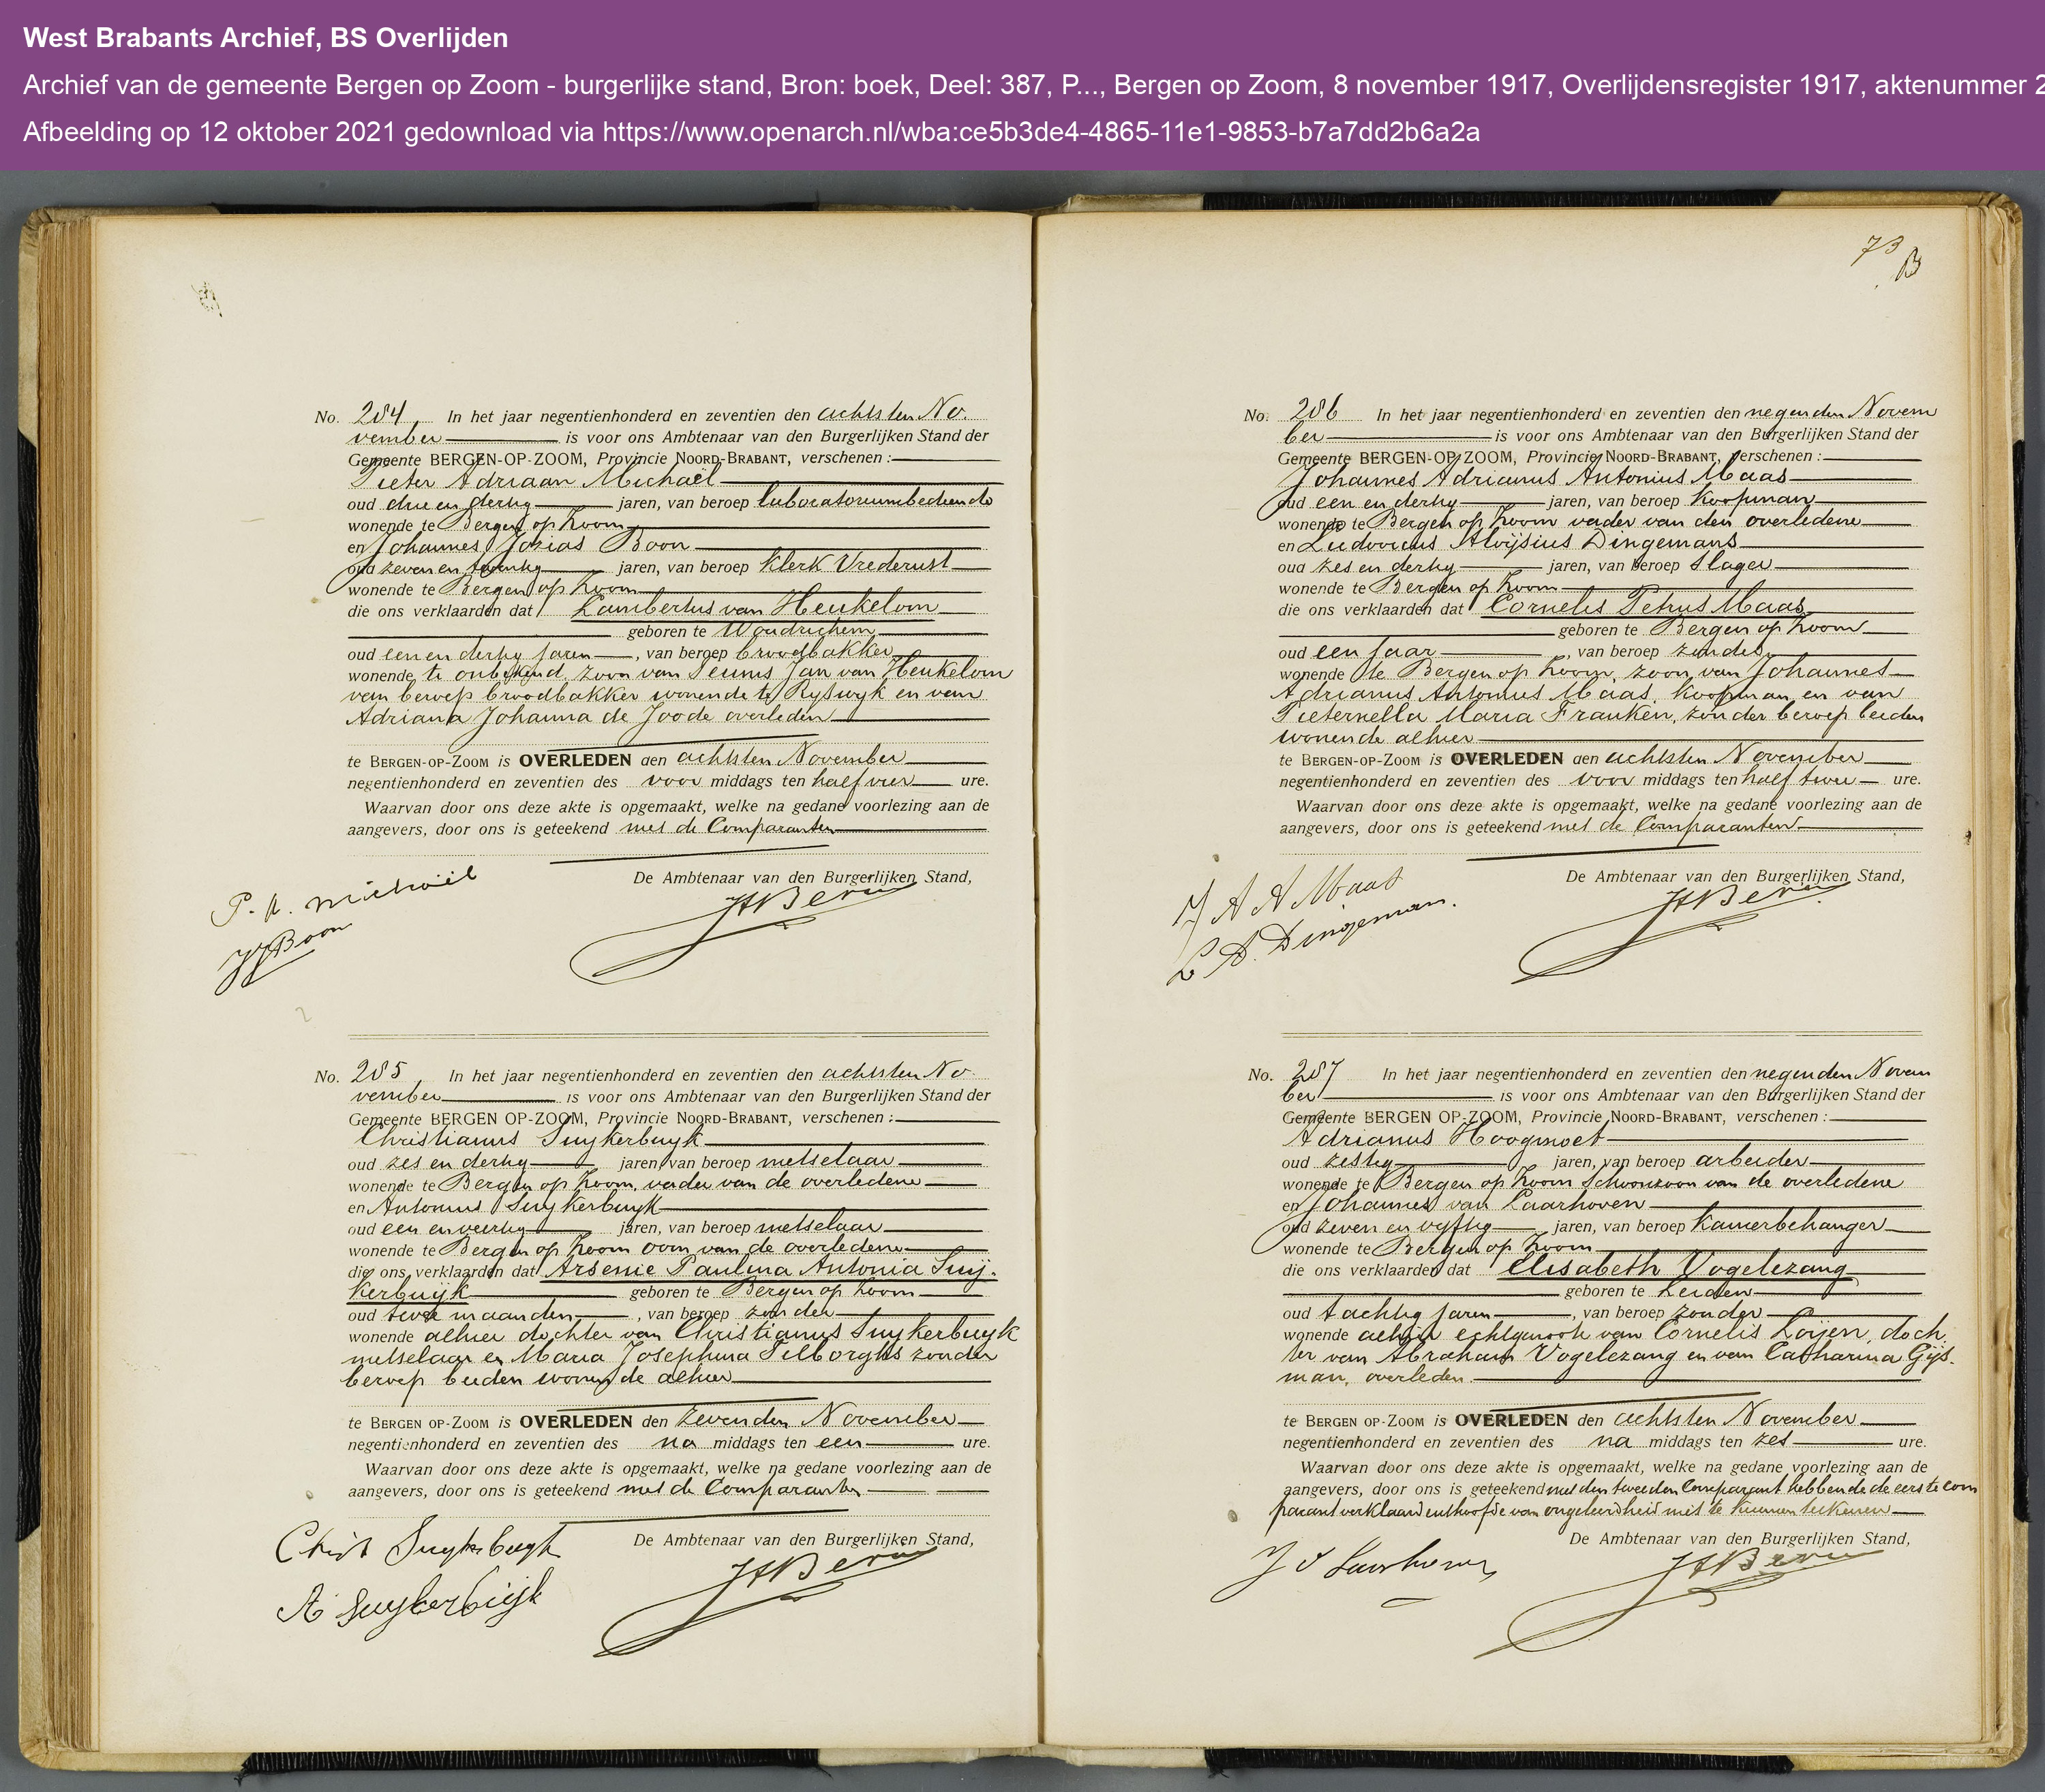 West Brabants Archief, BS Overlijden
Archief van de gemeente Bergen op Zoom - burgerlijke stand, Bron: boek, Deel: 387, P..., Bergen op Zoom, 8 november 1917, Overlijdensregister 1917, aktenummer 2
Afbeelding op 12 oktober 2021 gedownload via https://www.openarch.nl/wba:ce5b3de4-4865-11e1-9853-b7a7dd2b6a2a
No. 284 In het jaar negentienhonderd en zeventien den achtsten No
vember is voor ons Ambtenaar van den Burgerlijken Stand der
Gemeente BERGEN-OP-ZOOM, Provincie NOORD-BRABANT, verschenen:
Pieter Adriaan Michaël
oud drie en dertig jaren, van beroep laboratoriumbediende
wonende te Bergen op Zoom
en Johannes Josias Boon
oud zeven en twintig jaren, van beroep klerk Vrederust
wonende te Bergen op Zoom
die ons verklaarden dat Lambertus van Heukelom
geboren te Woudrichem
oud een en dertig jaren, van beroep broodbakker
wonende te onbekend, zoon van Teunis Jan van Heukelom
van beroep broodbakker wonende te Ryswyk en van
Adriana Johanna de Joode overleden
te BERGEN-OP-ZOOM is OVERLEDEN den achtsten November
negentienhonderd en zeventien des voor middags ten half vier ure.
Waarvan door ons deze akte is opgemaakt, welke na gedane voorlezing aan de
aangevers, door ons is geteekend met de Comparanten
De Ambtenaar van den Burgerlijken Stand,
P. A. Michaël
JJBoon
No. 285 In het jaar negentienhonderd en zeventien den achtsten No
vember is voor ons Ambtenaar van den Burgerlijken Stand der
Gemeente BERGEN OP-ZOOM, Provincie NOORD-BRABANT, verschenen:
Christianus Suykerbuyk
oud zes en dertig jaren, van beroep metselaar
wonende te Bergen op Zoom, vader van de overledene
en Antonius Suykerbuyk
oud een en veertig jaren, van beroep metselaar
wonende te Bergen op Zoom oom van de overledene
die ons verklaarden dat Arsenie Paulina Antonia Suij-
kerbuijk geboren te Bergen op Zoom
oud twee maanden, van beroep zonder
wonende alhier dochter van Christianus Suykerbuyk
metselaar en Maria Josephina Tilborghs zonder
beroep beiden wonende alhier
te BERGEN OP-ZOOM is OVERLEDEN den zevenden November
negentienhonderd en zeventien des na middags ten een ure.
Waarvan door ons deze akte is opgemaakt, welke na gedane voorlezing aan de
aangevers, door ons is geteekend met de Comparanten
De Ambtenaar van den Burgerlijken Stand,
Christ Suykerbuyk
A Suykerbuijk
73
B
No. 286 In het jaar negentienhonderd en zeventien den negenden Novem
ber is voor ons Ambtenaar van den Burgerlijken Stand der
Gemeente BERGEN-OP-ZOOM, Provincie NOORD-BRABANT, verschenen:
Johannes Adrianus Antonius Maas
oud een en dertig jaren, van beroep koopman
wonende te Bergen op Zoom vader van den overledene
en Ludovicus Aloijsius Dingemans
oud zes en dertig jaren, van beroep slager
wonende te Bergen op Zoom
die ons verklaarden dat Cornelis Petrus Maas
geboren te Bergen op Zoom
oud een jaar, van beroep zonder
wonende te Bergen op Zoom, zoon van Johannes
Adrianus Antonius Maas, koopman en van
Pieternella Maria Franken, zonder beroep beiden
wonende alhier
te BERGEN-OP-ZOOM is OVERLEDEN den achtsten November
negentienhonderd en zeventien des voor middags ten half twee ure.
Waarvan door ons deze akte is opgemaakt, welke na gedane voorlezing aan de
aangevers, door ons is geteekend met de Comparanten
De Ambtenaar van den Burgerlijken Stand,
J A A Maas
L A. Dingeman.
No. 287 In het jaar negentienhonderd en zeventien den negenden Novem
ber is voor ons Ambtenaar van den Burgerlijken Stand der
Gemeente BERGEN OP-ZOOM, Provincie NOORD-BRABANT, verschenen:
Adrianus Hoogmoet
oud zestig jaren, van beroep arbeider
wonende te Bergen op Zoom Schoonzoon van de overledene
en Johannes van Laarhoven
oud zeven en vyftig jaren, van beroep kamerbehanger
wonende te Bergen op Zoom
die ons verklaarden dat Elisabeth Vogelezang
geboren te Leiden
oud tachtig jaren, van beroep zonder
wonende alhier echtgenoot van Cornelis Loijen, doch
ter van Abraham Vogelezang en van Catharina Gijs-
man, overleden.
te BERGEN OP-ZOOM is OVERLEDEN den achtsten November
negentienhonderd en zeventien des na middags ten zes ure.
Waarvan door ons deze akte is opgemaakt, welke na gedane voorlezing aan de
aangevers, door ons is geteekend met den tweeden Comparant hebbende de eerste com
parant verklaard uit hoofde van ongeleerdheid niet te kunnen tekenen
De Ambtenaar van den Burgerlijken Stand,